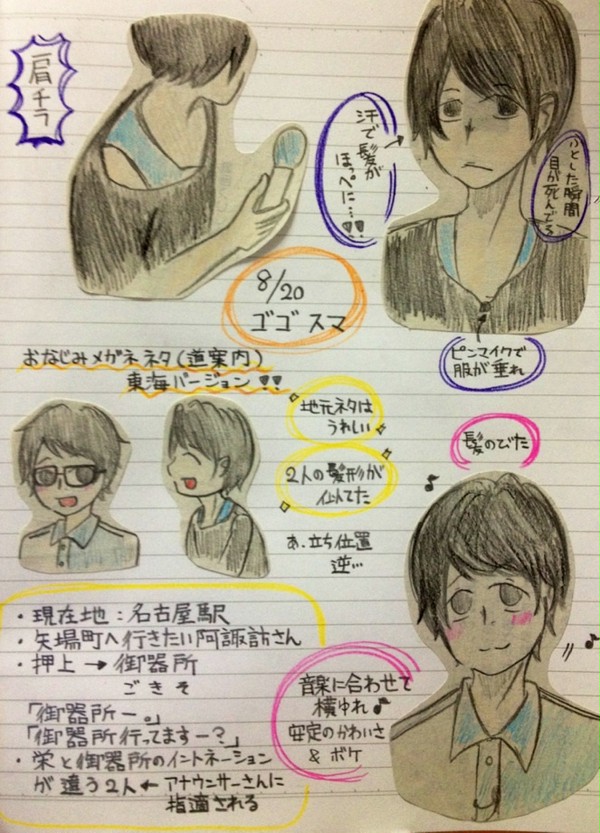 肩チラ
汗で髪が
ほっぺに…♥♥
ふとした瞬間
目が死んでる
8/20
ゴゴスマ
ピンマイクで
服が垂れ
おなじみメガネネタ(道案内)
東海バージョン♥♥
地元ネタは
うれしい
2人の髪形が
似てた
髪のびた
あ、立ち位置
逆…
・現在地:名古屋駅
・矢場町へ行きたい阿諏訪さん
・押上→御器所
ごきそ
「御器所ー。」
「御器所行ってますー?」
・栄と御器所のイントネーション
が違う2人←アナウンサーさんに
指適される
音楽に合わせて
横ゆれ♪
安定のかわいさ
& ボケ